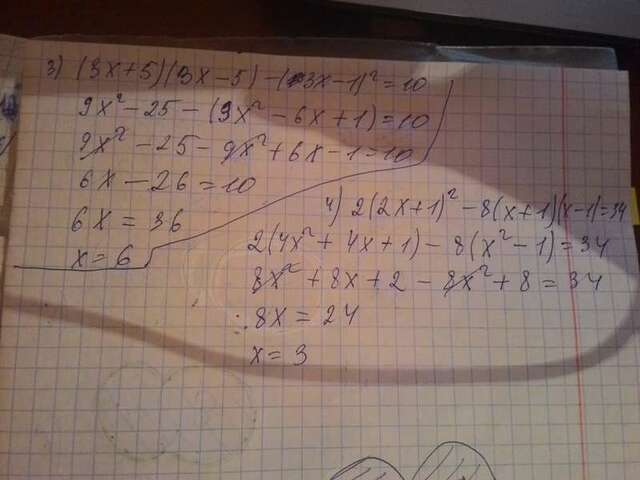 3) (3x+5)(3x-5)-(3x-1)²=10
9x²-25-(9x²-6x+1)=10
9x²-25-9x²+6x-1=10
6x-26=10
6x=36
x=6
4) 2(2x+1)²-8(x+1)(x-1)=34
2(4x²+4x+1)-8(x²-1)=34
8x²+8x+2-8x²+8=34
8x=24
x=3